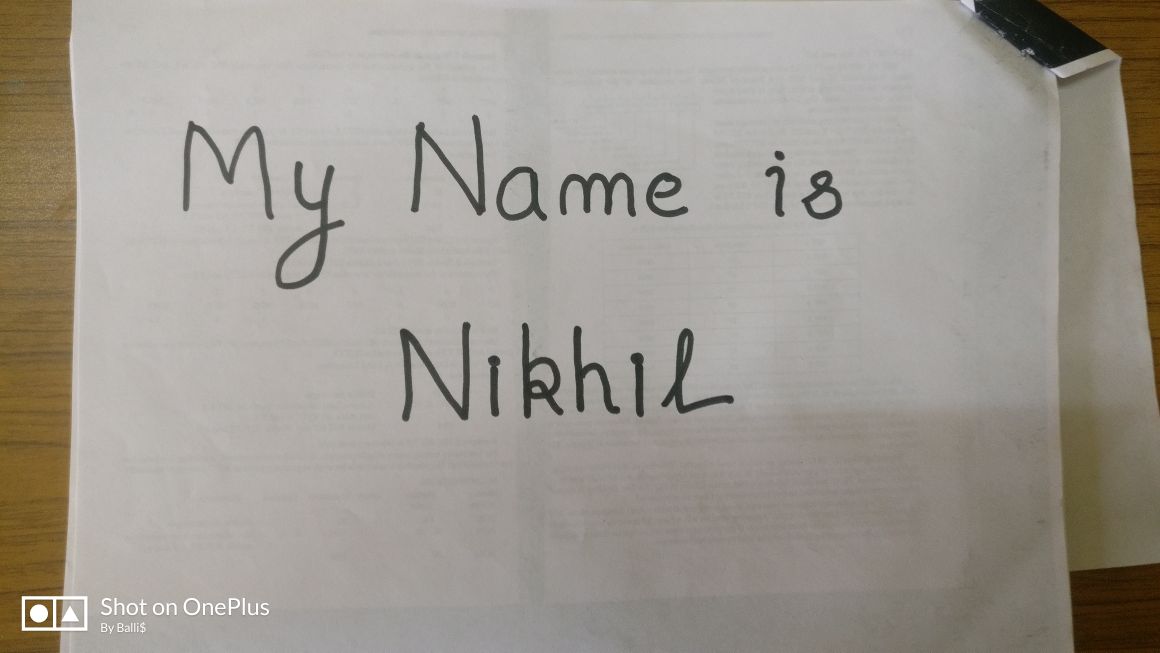 My Name is
Nikhil
Shot on OnePlus
By Balli$